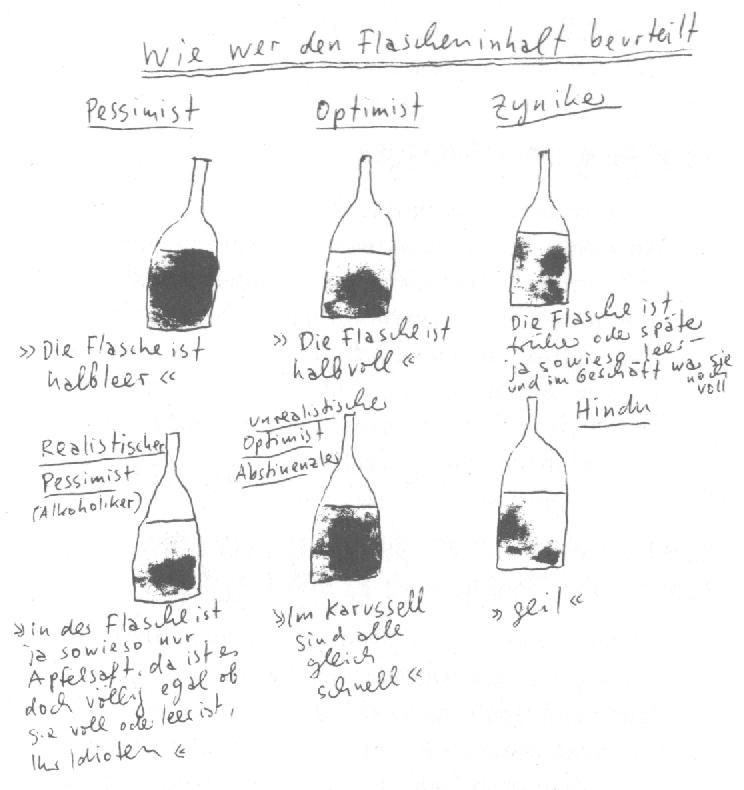 Wie wer den Flascheninhalt beurteilt
Pessimist
»Die Flasche ist
halbleer«
Optimist
»Die Flasche ist
halbvoll«
Zyniker
Die Flasche ist
früher oder später
ja sowieso leer –
und im Geschäft war sie
noch
voll
Realistischer
Pessimist
(Alkoholiker)
»in der Flasche ist
ja sowieso nur
Apfelsaft, da ist es
doch völlig egal ob
sie voll oder leer ist,
Ihr Idioten«
unrealistischer
Optimist
Abstinenzler
»Im Karussell
sind alle
gleich
schnell«
Hindu
»geil«